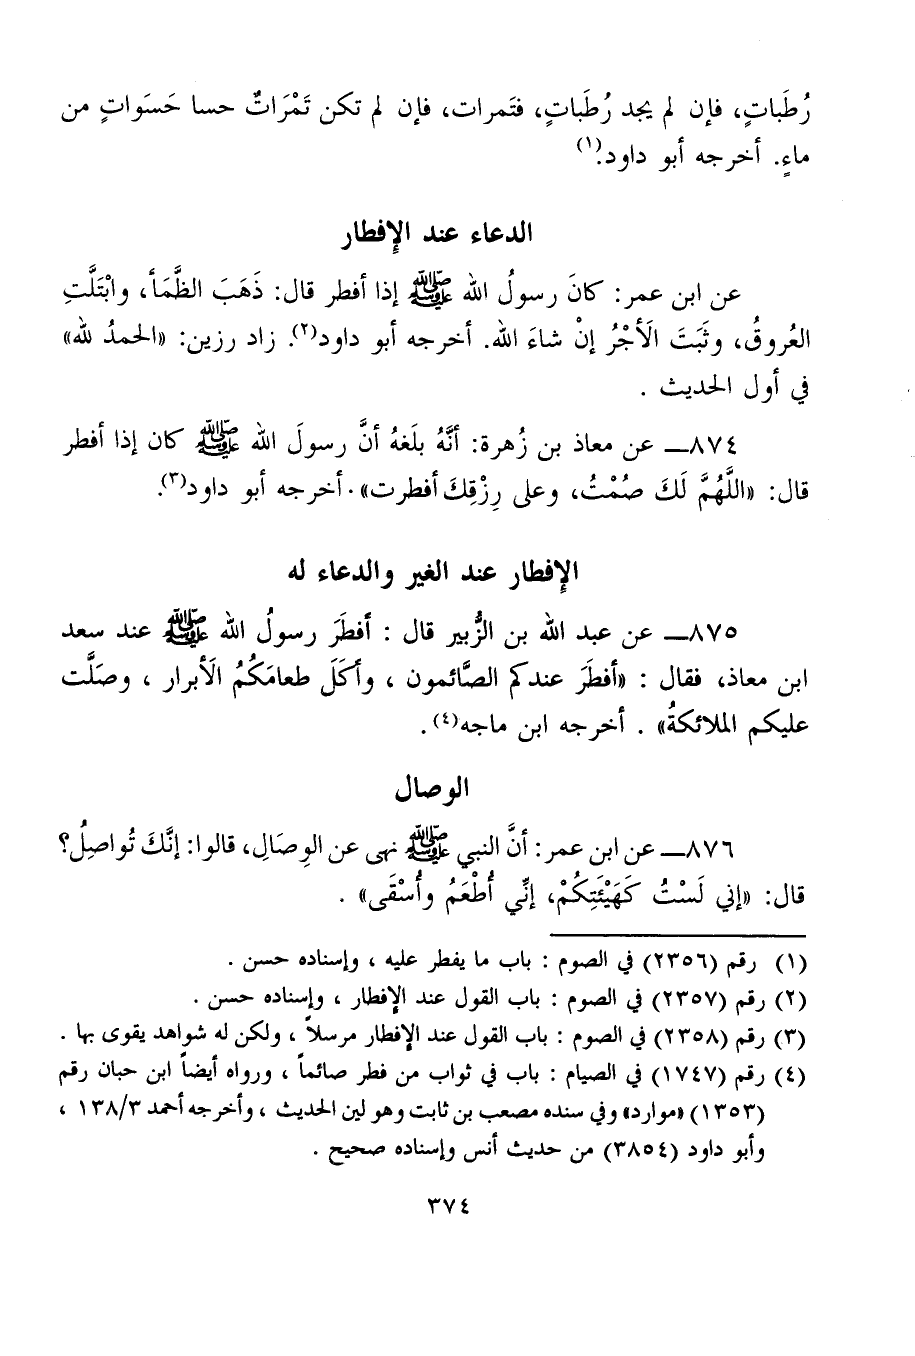 رُطَباتٍ، فإن لم يجد رُطَباتٍ، فتَمرات، فإن لم تكن تَمْرَاتٌ حسا حَسَواتٍ من
ماءٍ. أخرجه أبو داود.(١)
الدعاء عند الإفطار
عن ابن عمر: كانَ رسولُ الله ﷺ إذا أفطر قال: ذَهَبَ الظَّمَأ، وابْتَلَّتِ
العُروقُ، وثَبَتَ الَأجْرُ إنْ شاءَ الله. أخرجه أبو داود(٢). زاد رزين: «الحمدُ لله»
في أول الحديث .
٨٧٤ــ عن معاذ بن زُهرة: أنَّهُ بلَغهُ أنَّ رسولَ الله ﷺ كان إذا أفطر
قال: «اللَّهُمَّ لَكَ صُمْتُ، وعلى رِزْقِكَ أفطرت». أخرجه أبو داود(٣).
الإفطار عند الغير والدعاء له
٨٧٥ــ عن عبد الله بن الزُّبير قال : أفطَرَ رسولُ الله ﷺ عند سعد
ابن معاذ، فقال : «أفطَرَ عندكم الصَّائمون ، وأكَلَ طعامَكُمُ الَأبرار ، وصَلَّت
عليكم الملائكةُ» . أخرجه ابن ماجه(٤).
الوصال
٨٧٦ــ عن ابن عمر: أنَّ النبي ﷺ نهى عن الوِصَالِ، قالوا: إنَّكَ تُواصِلُ؟
قال: «إني لَسْتُ كَهَيْئَتِكُمْ، إنِّي أُطْعَمُ وأُسْقَى» .
(١) رقم (٢٣٥٦) في الصوم : باب ما يفطر عليه ، وإسناده حسن .
(٢) رقم (٢٣٥٧) في الصوم : باب القول عند الإفطار ، وإسناده حسن .
(٣) رقم (٢٣٥٨) في الصوم : باب القول عند الإفطار مرسلاً ، ولكن له شواهد يقوى بها .
(٤) رقم (١٧٤٧) في الصيام : باب في ثواب من فطر صائماً ، ورواه أيضاً ابن حبان رقم
(١٣٥٣) «موارد» وفي سنده مصعب بن ثابت وهو لين الحديث ، وأخرجه أحمد ١٣٨/٣ ،
وأبو داود (٣٨٥٤) من حديث أنس وإسناده صحيح .
٣٧٤